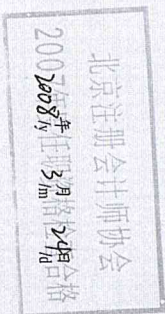 北京注册会计师协会
2007年任职资格检查合格
2008年 3月 24日
/y /m /d